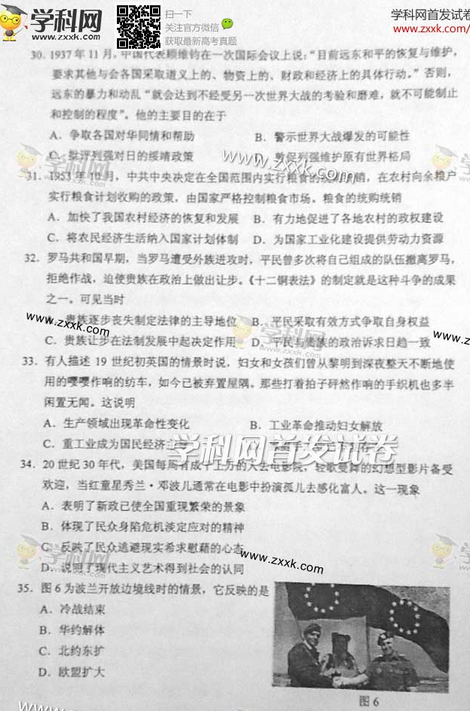 学科网 www.zxxk.com
扫一扫
关注官方微信
获取最新高考真题
学科网首发试卷
www.zxxk.com
30. 1937年11月,中国代表顾维钧在一次国际会议上说:"目前远东和平的恢复与维护,
要求其他与会各国采取道义上的、物资上的、财政和经济上的具体行动。"否则,
远东的暴力和动乱"就会达到不经受另一次世界大战的考验和磨难,就不可能制止
和控制的程度"。他的主要目的在于
A. 争取各国对华同情和帮助 B. 警示世界大战爆发的可能性
C. 批评列强对日的绥靖政策 D. 敦促列强维护原有世界格局
31. 1953年10月,中共中央决定在全国范围内实行粮食的统购统销,在农村向余粮户
实行粮食计划收购的政策,由国家严格控制粮食市场。粮食的统购统销
A. 加快了我国农村经济的恢复和发展 B. 有力地促进了各地农村的政权建设
C. 将农民经济生活纳入国家计划体制 D. 为国家工业化建设提供劳动力资源
32. 罗马共和国早期,当罗马遭受外族进攻时,平民曾多次将自己组成的队伍撤离罗马,
拒绝作战,迫使贵族在政治上做出让步。《十二铜表法》的制定就是这种斗争的成果
之一。可见当时
贵族逐步丧失制定法律的主导地位 B. 平民采用有效方式争取自身权益
C. 贵族让步在法制发展中起决定作用 D. 平民与贵族的政治诉求日趋一致
33. 有人描述19世纪初英国的情景时说,妇女和女孩们曾从黎明到深夜整天不断地使
用的嘤嘤作响的纺车,如今已被弃置屋隅。那些打着拍子砰然作响的手织机也多半
闲置无闻。这说明
A. 生产领域出现革命性变化 B. 工业革命推动妇女解放
C. 重工业成为国民经济主
学科网首发试卷
34. 20世纪30年代,美国每周有成千上万的人去电影院,轻歌曼舞的幻想型影片备受
欢迎,当红童星秀兰·邓波儿通常在电影中扮演孤儿去感化富人。这一现象
A. 表明了新政已使全国重现繁荣的景象
B. 体现了民众身陷危机淡定应对的精神
C. 反映了民众逃避现实希求慰藉的心态
D. 说明了现代主义艺术得到社会的认同
35. 图6为波兰开放边境线时的情景,它反映的是
A. 冷战结束
B. 华约解体
C. 北约东扩
D. 欧盟扩大
图6
www.zxxk.com